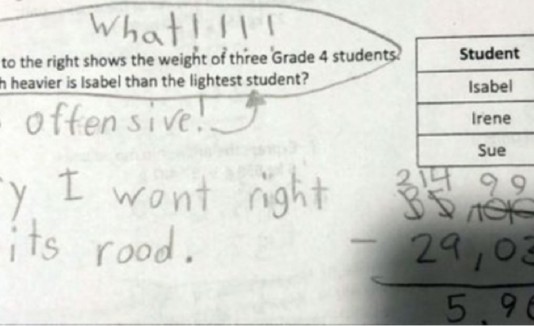 What!!!!
to the right shows the weight of three Grade 4 students.
h heavier is Isabel than the lightest student?
offensive!
y I wont right
its rood.
Student
Isabel
Irene
Sue
3 14 9 9
- 29,03
5.9